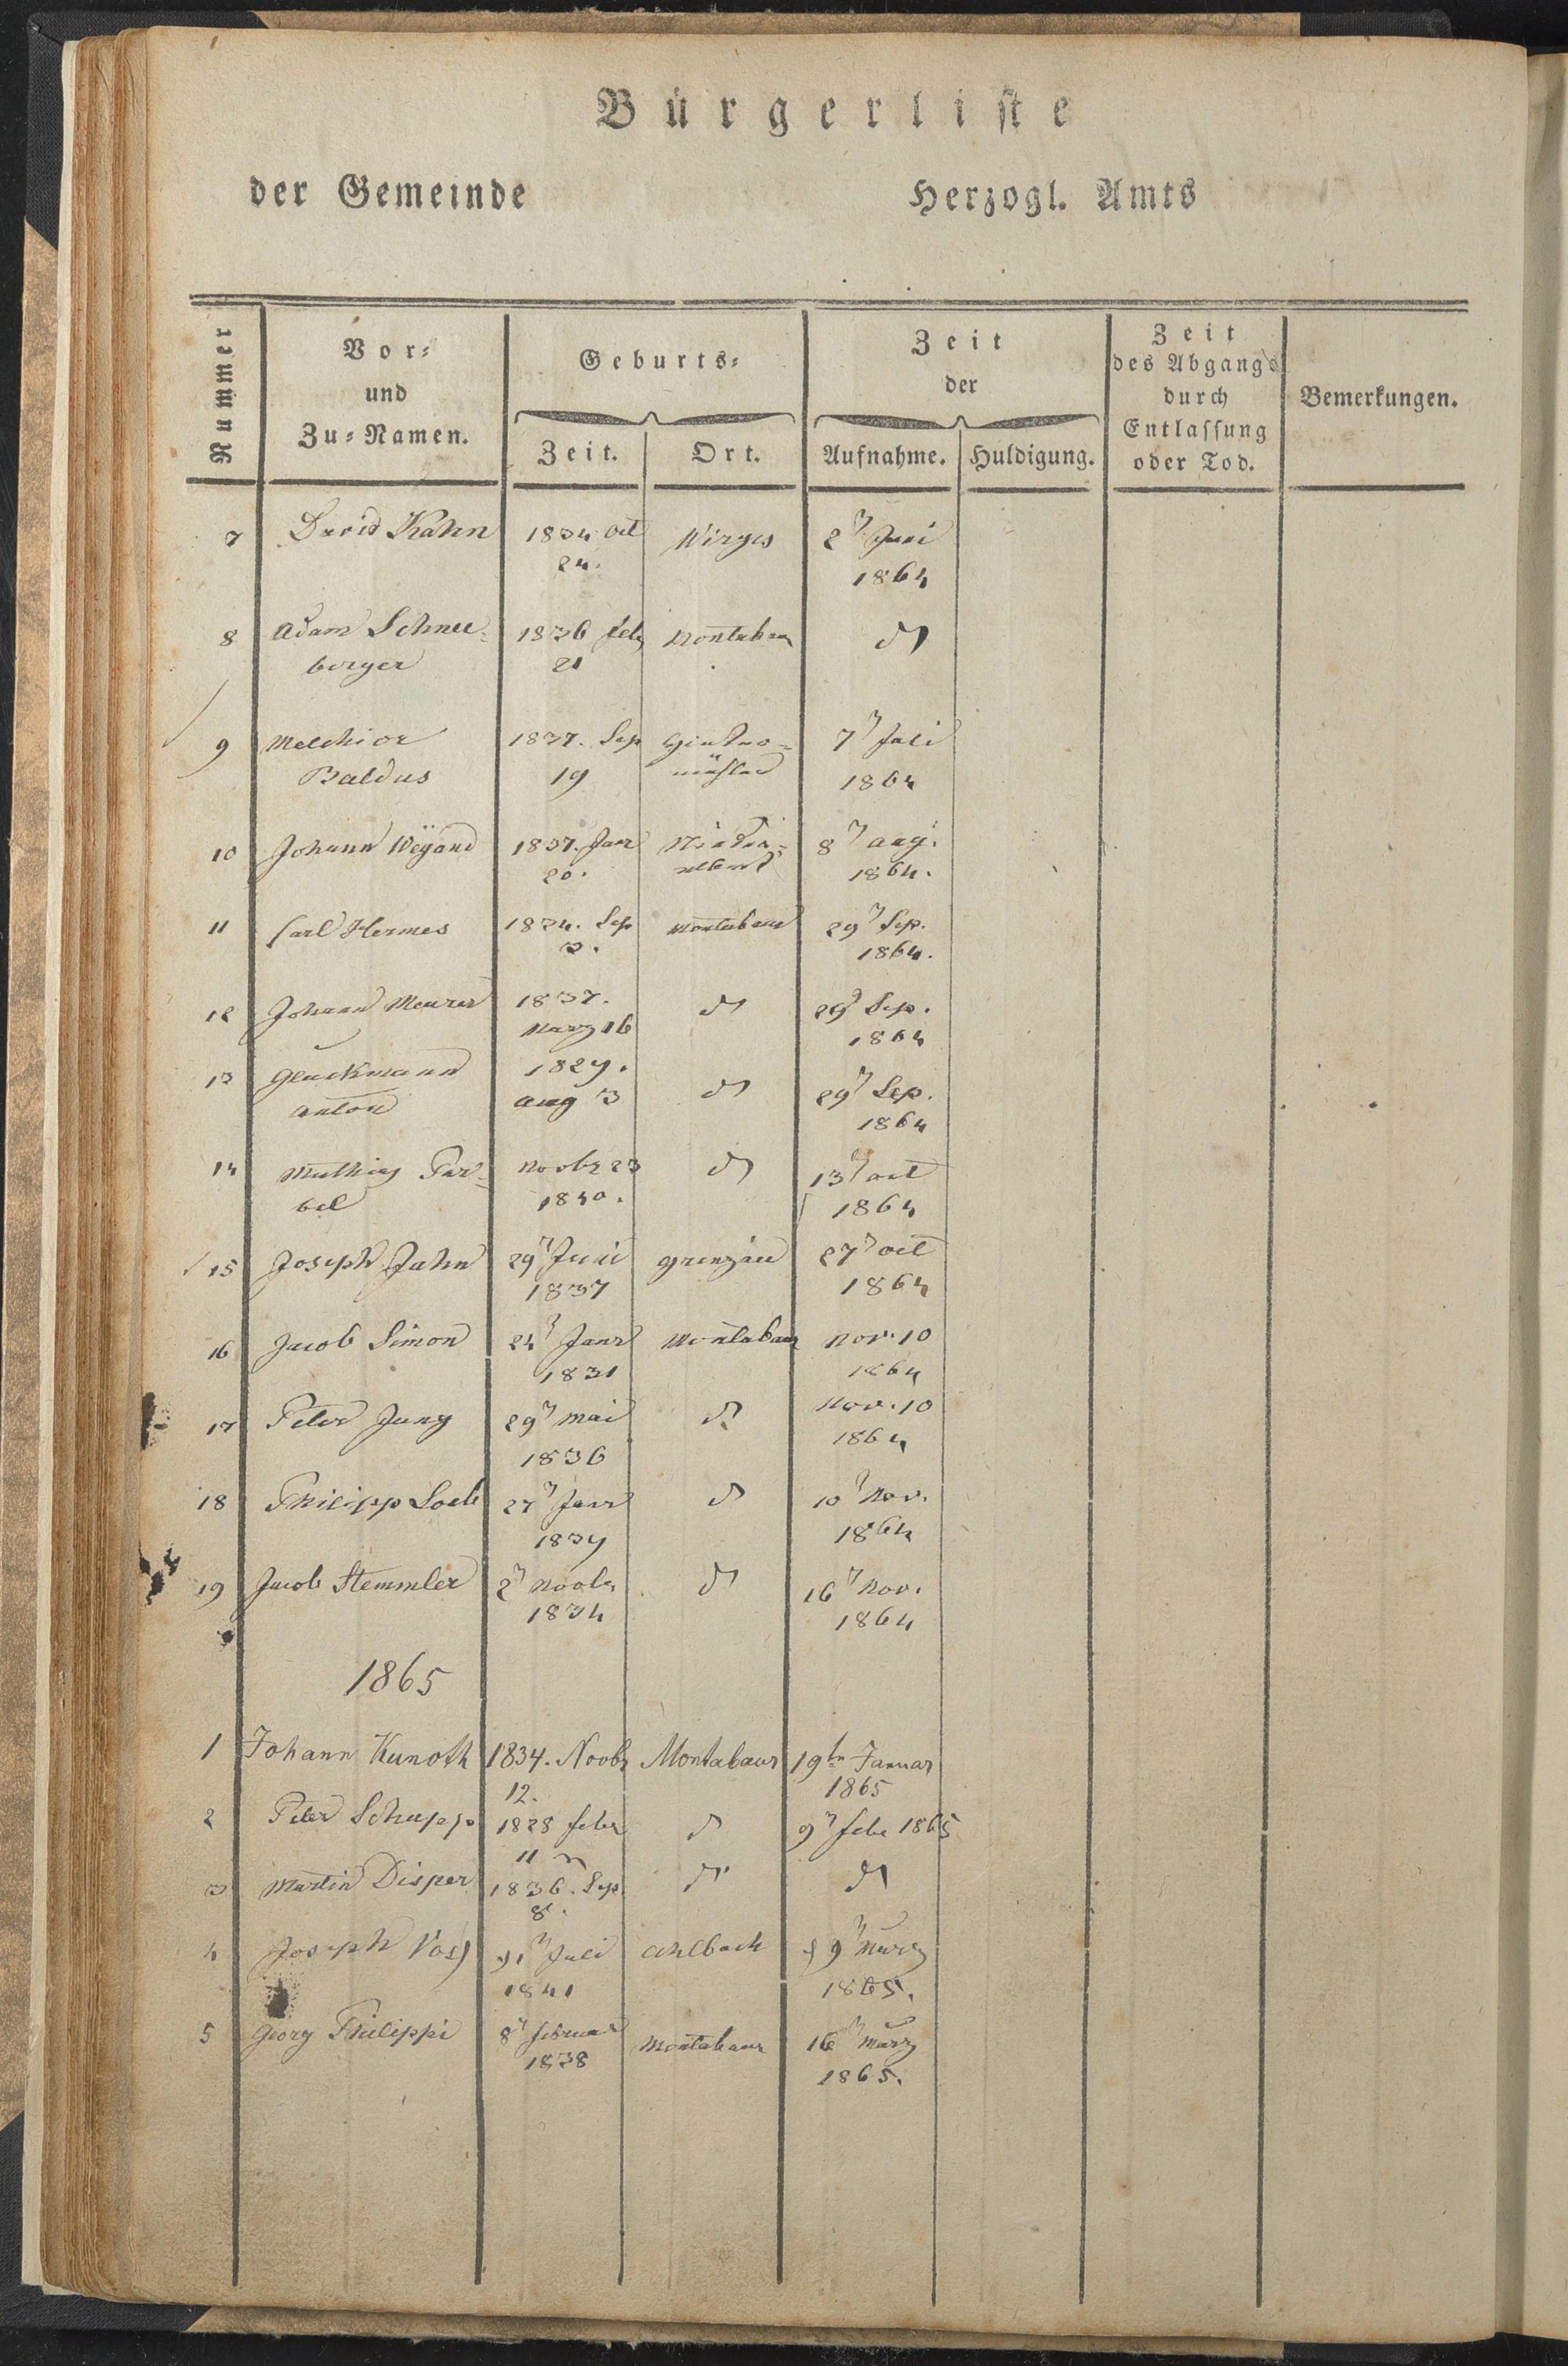 Bürgerliste
der Gemeinde Herzogl. Amts
Nummer
Vor-
und
Zu-Namen.
Geburts-
Zeit. Ort.
Zeit
der
Aufnahme. Huldigung.
Zeit
des Abgangs
durch
Entlassung
oder Tod.
Bemerkungen.
7 David Kahn 1834 Oct Wirges 2 Juni
24. 1864
8 Adam Schnee- 1836 feb Montabaur do
berger 21
9 Melchior 1837. Sep 7 Juli
Baldus 19 mühlen 1864
10 Johann Weÿand 1837. Janr Nieder- 8 aug.
20. elbert 1864.
11 Carl Hermes 1834. Sep Montabaur 29 Sep.
3. 1864.
12 Johann Meurer 1837. do 29 Sep.
März 16 1864
13 Gluckmann 1829. do 29 Sep.
Anton aug 3 1864
14 Mathias Far- Novbr 23 do 13 oct
bel 1840. 1864
15 Joseph Jahn 29 Juni Grenzau 27 oct
1837 1864
16 Jacob Simon 24 Janr Montabaur Nov. 10
1831 1864
17 Peter Jung 29 Mai do Nov. 10
1836 1864
18 Philipp Loeb 27 Janr do 10 Nov.
1839 1864
19 Jacob Stemmler 2 Novbr do 16 Nov.
1834 1864
1865
1 Johann Kunoth 1834. Novbr Montabaur 19tn Januar
12. 1865
2 Peter Schupp 1828 febr do 9 febr 1865
11
3 Martin Disper 1836. Sep. do do
8.
4 Joseph Voss Juli Ahlbach 9 März
1841 1865.
5 Georg Philippi 8 februar Montabaur 16 März
1838 1865.